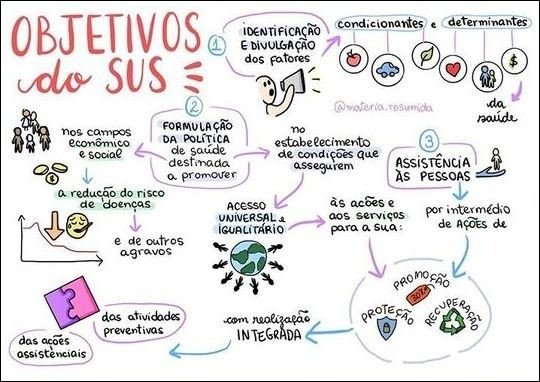 OBJETIVOS
do SUS
1
IDENTIFICAÇÃO
E DIVULGAÇÃO
dos fatores
condicionantes e determinantes
$
da
saúde
@materia.resumida
2
FORMULAÇÃO
DA POLÍTICA
de saúde
destinada
a promover
nos campos
econômico e
social
a redução do risco
de doenças
e de outros
agravos
no
estabelecimento
de condições que
assegurem
ACESSO
UNIVERSAL e
IGUALITÁRIO
às ações e
aos serviços
para a sua:
3
ASSISTÊNCIA
ÀS PESSOAS
por intermédio
de AÇÕES de
PROMOÇÃO
PROTEÇÃO
RECUPERAÇÃO
com realização
INTEGRADA
das atividades
preventivas
das ações
assistenciais